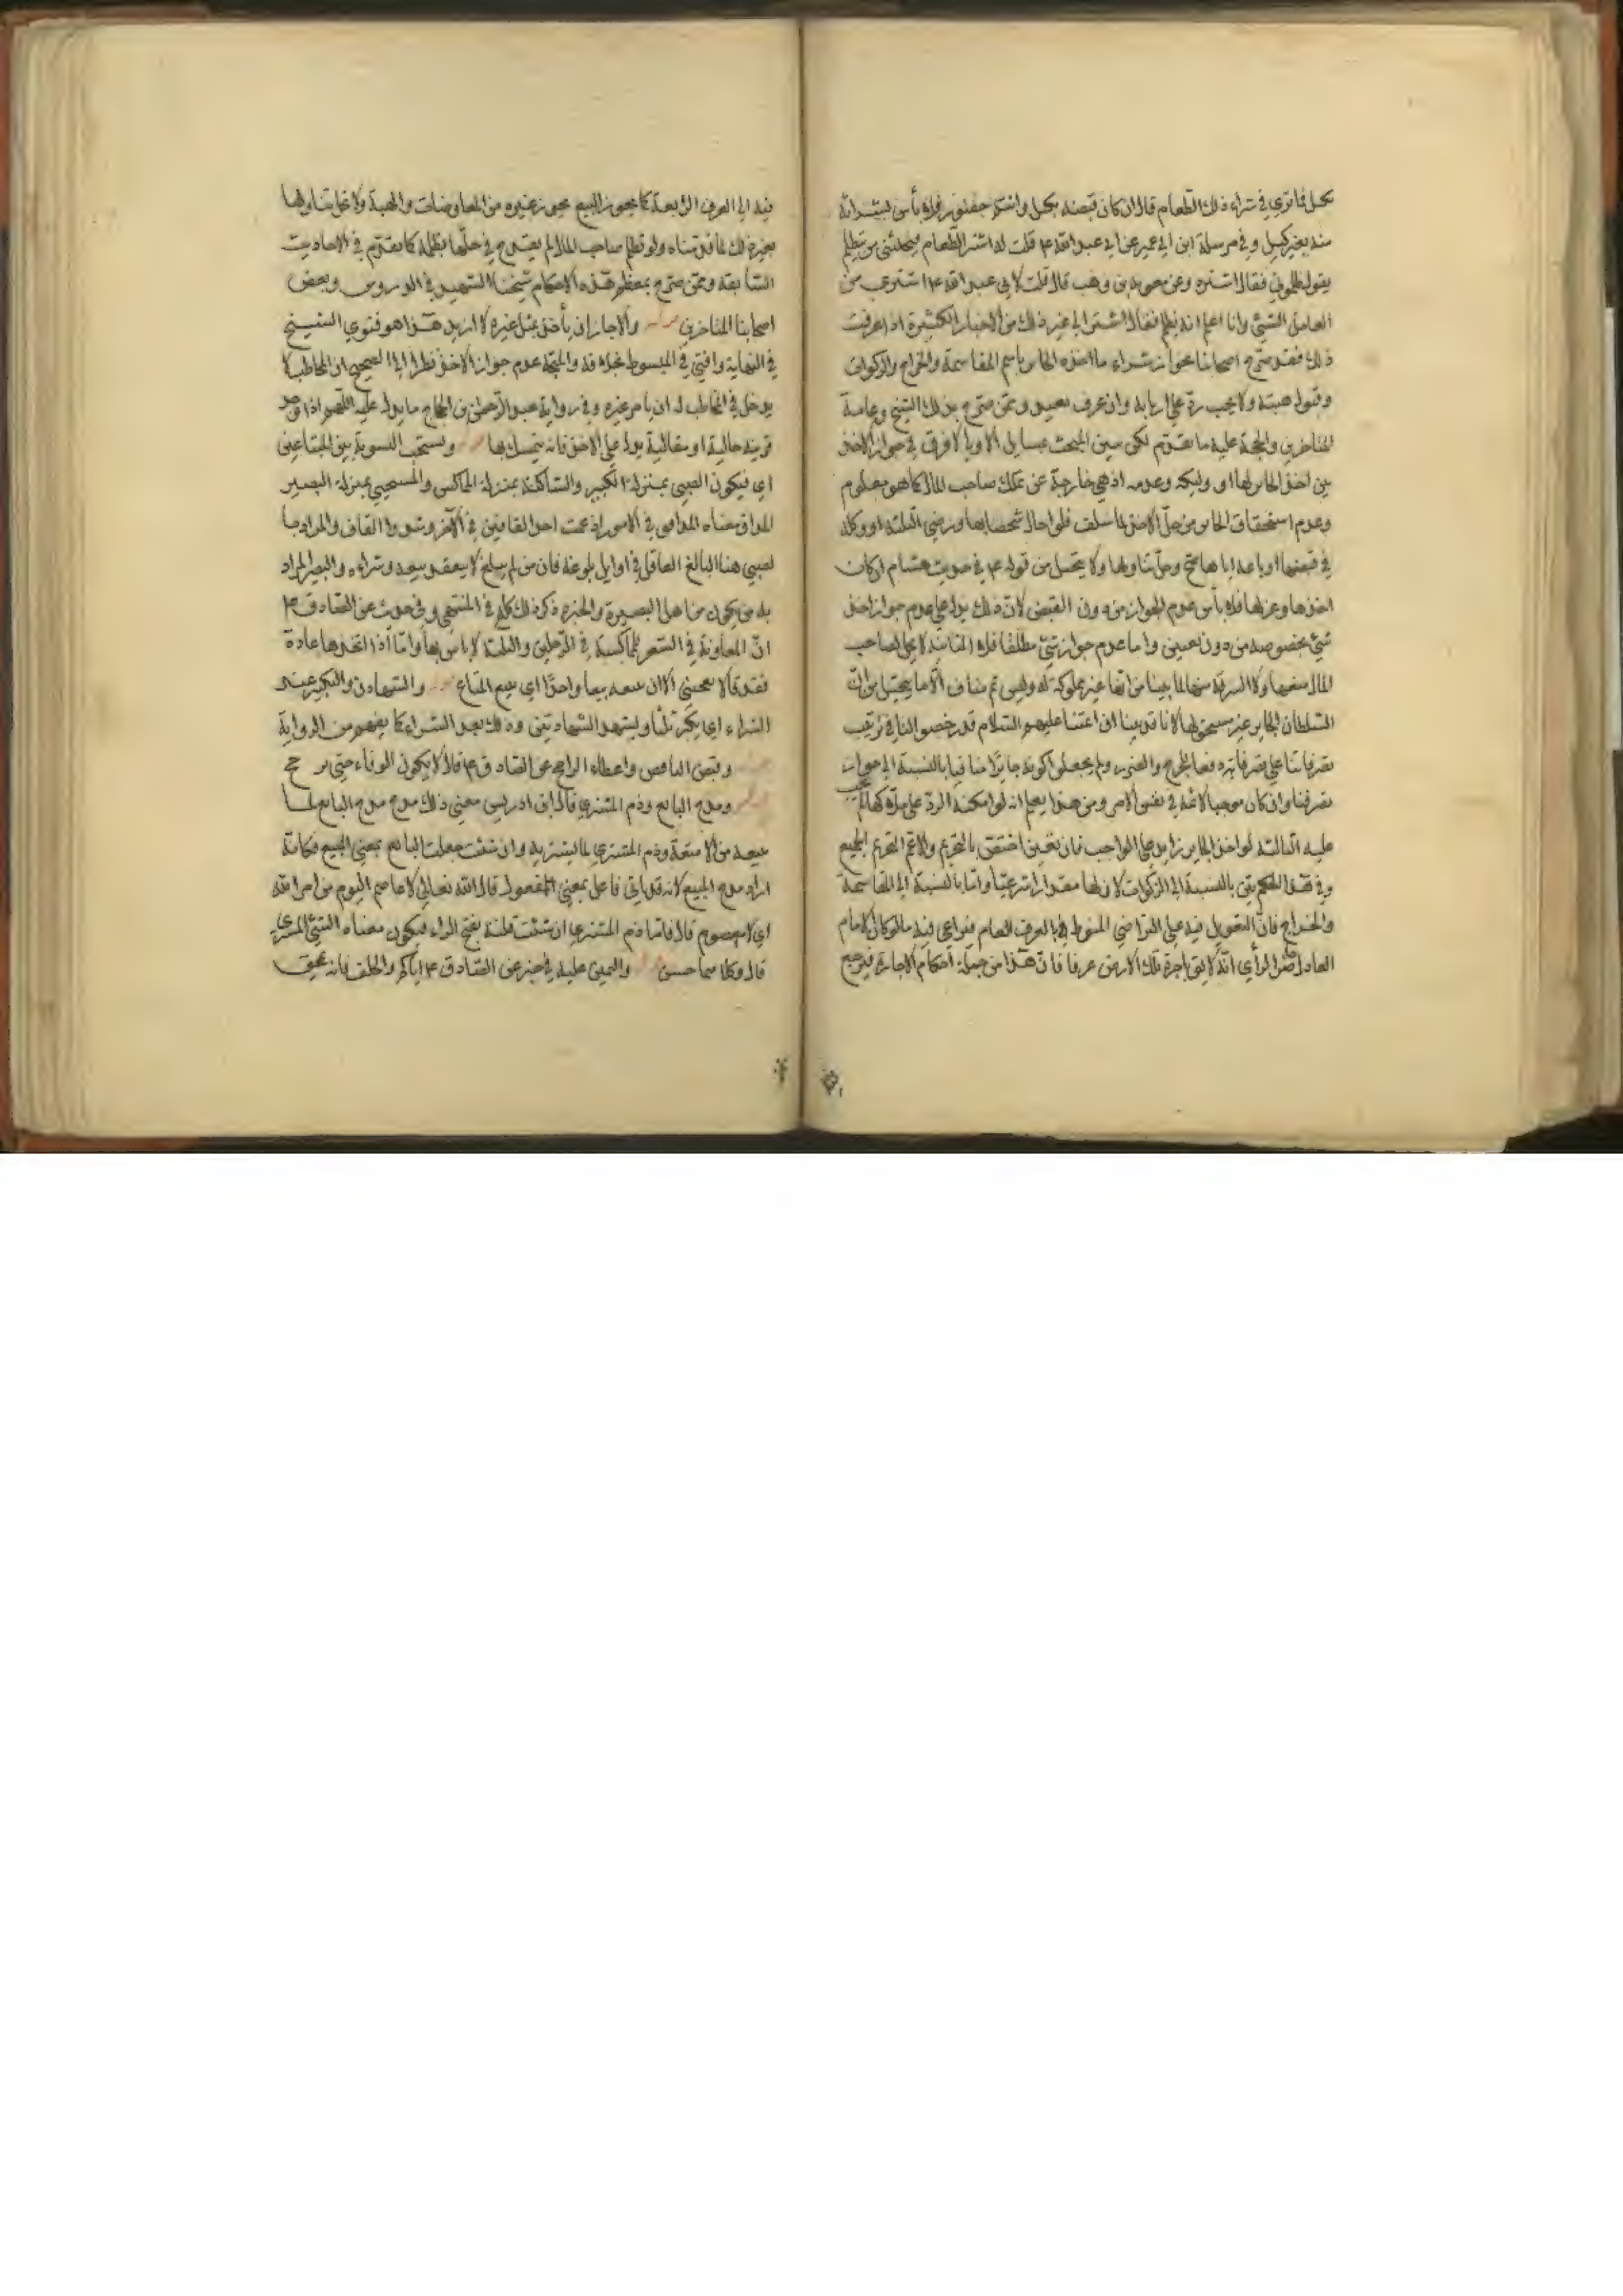 بكيل فما ترى في شراء ذلك الطعام قال ان كان قبضه بكيل وانتم حضور فلا بأس بشرائه
منه بغير كيل وفي مرسلة ابن ابي عمير عن ابي عبد الله ع قلت له اشتر الطعام فيجيئني من يتظلم
يقول ظلموني فقال اشتره وعن معوية بن وهب قال قلت لابي عبد الله ع اشتري من
العامل الشيء وانا اعلم انه يظلم فقال اشتر الى غير ذلك من الاخبار الكثيرة اذا عرفت
ذلك فقد صرح اصحابنا بجواز شراء ما اخذه الجاير باسم المقاسمة والخراج والزكوات
وقبول هبته ولا يجب رده على اربابه وان عرف بعينه وممن صرح بذلك الشيخ وعامة
المتاخرين والحجة عليه ما تقدم لكن تبين المبحث بمسايل الاولى لا فرق في جواز الاخذ
بين اخذ الجاير لها او وكيله وعدمه اذ هي خارجة عن ملك صاحب المال كما هو معلوم
وعدم استحقاق الجاير من حل الاخذ لما سلف فلو احال شخصا بها ورضي الثلثة او وكله
في قبضها او باعه اياها صح وحل تناولها ولا يتخيل من قوله ع في حديث هشام ان كان
اخذها وعزلها فلا بأس عدم الجواز من دون القبض لان ذلك يدل على عدم جواز اخذ
شيء بخصوصه من دون تعيين واما عدم جواز شيء مطلقا فلا الثانية لا يحل لصاحب
المال منعها ولا السرقة منها لما بينا من انها غير مملوكة له وليس ثم مناف الا ما يتخيل من ان
السلطان الجاير غير مستحق لها لانا قد بينا ان ائمتنا عليهم السلام قد رخصوا لنا في ترتيب
تصرفاتنا على تصرفاته دفعا للحرج والضرر ولم يجعلوا كونه جايرا منافيا بالنسبة الى جواز
تصرفنا وان كان موجبا لاثمه في نفس الامر ومن هنا يعلم انه لو امكنه الرد على ملاكها لم يجب
عليه الثالثة لو اخذ الجاير زايدا على الواجب فان تعين اختص بالتحريم والا عم التحريم الجميع
وفي هذا الحكم بين بالنسبة الى الزكوات لان لها مقدارا شرعيا واما بالنسبة الى المقاسمة
والخراج فان التعويل فيه على التراضي المنوط بالعرف العام فيراعى فيه ما لو كان الامام
العادل ظاهرا لرأى انه لايق باجرة تلك الارض عرفا فان هذا من جملة احكام الاجارة فيرجع
فيه الى العرف الرابعة كما يجوز البيع يجوز غيره من المعاوضات والهبة ولا يحل تناولها
بغير ذلك لما قدمناه ولو تظلم صاحب المال لم يقدح في حلها بظلمه كما تقدم في الاحاديث
السابقة وممن صرح بمعظم هذه الاحكام شيخنا الشهيد في الدروس وبعض
اصحابنا المتاخرين والا جاز ان يأخذ مثل غيره لا ازيد هذا هو فتوى الشيخ
في النهاية وافتى في المبسوط بخلافه والحجة عدم جواز الاخذ نظرا الى الصحيح ان المخاطب لا
يدخل في الخاطب له ان يامر غيره وفي رواية عبد الرحمن بن الحجاج ما يدل عليه اللهم اذا وجد
قرينة حالية او مقالية يدل على الاخذ فانه يتمسك بها ويستحب التسوية بين المبتاعين
اي فيكون الصبي بمنزلة الكبير والساكت بمنزلة المماكس والمستحيي بمنزلة البصير
المداق معناه المداقق في الامور ادغمت احد القافين في الآخر وشددوا القاف والمراد با
لصبي هنا البالغ العاقل في اوايل بلوغه فان من لم يبلغ لا ينعقد بيعه وشراءه والبصير المراد
به من يكون من اهل البصيرة والخبرة ذكر ذلك كله في المنتهى وفي حديث عن الصادق ع
ان المعاونة في السعر للمماكسة في الرجلين والثلثة لا بأس بها واما اذا اتخذها عادة
فقد قال لا يعجبني الا ان يبيعه بيعا واحدا اي يبيع المتاع والشهادتان والتكبير عند
الشراء اي يكبر ثلثا ويشهد الشهادتين وذلك بعد الشراء كما يفهم من الرواية
وقبض الناقص واعطاء الراجح عن الصادق ع قال لا يكون الوفاء حتى يرجح
ومدح البايع وذم المشتري قال ابن ادريس معنى ذلك مدح البايع لما
يبيعه من الامتعة وذم المشتري لما يشتريه وان شئت جعلت البايع بمعنى المبيع فكانه
اراد مدح المبيع لانه قد يأتي فاعل بمعنى المفعول قال الله تعالى لا عاصم اليوم من امر الله
اي لا معصوم قال فاما ذم المشتري ان شئت قلته بفتح الراء فيكون معناه الشيء المشترى
قال وكلاهما حسن واليمين عليه في خبر عن الصادق ع اياكم والحلف فانه يمحق